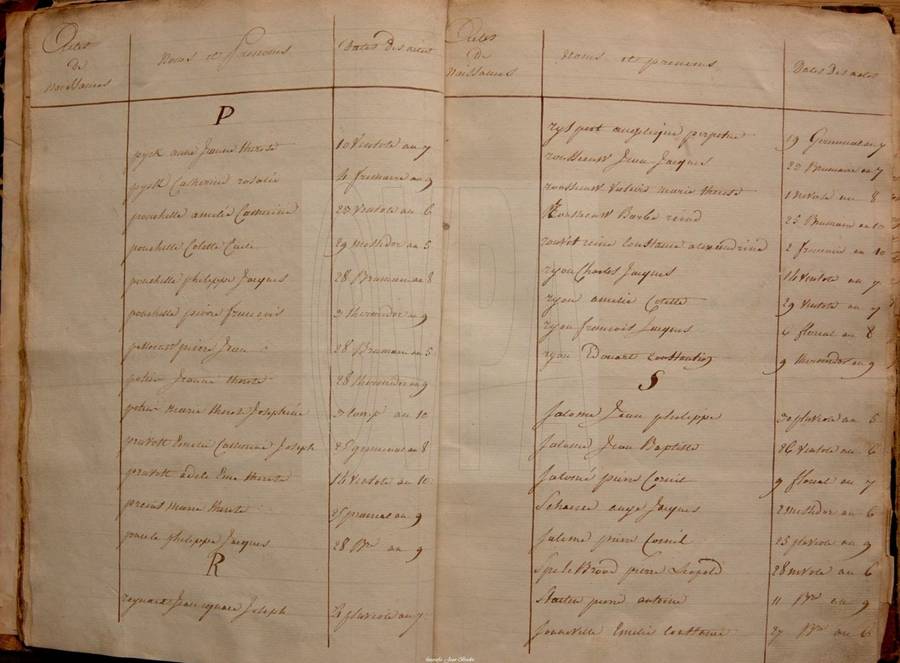 Actes
de
Naissances
Noms et Prenoms
Dates des actes
P
pyck anne Jeanne therese
10 Ventose an 7
pyck Catherine rosalie
4 frimaire an 9
pouchelle amelie Catherine
20 Ventose an 6
pouchelle Colette Cecile
29 messidor an 5
pouchelle philippe Jacques
28 Brumaire an 8
pouchelle pierre francois
9 thermidor an 9
pierre Jean
28 Brumaire an 5
Jeanne therese
28 thermidor an 9
marie therese Josephine
an 10
pruvott Emelie Catherine Joseph
25 germinal an 8
pruvott adele therese
14 Ventose an 10
marie therese
25 prairial an 9
philippe Jacques
28 Bre an 9
R
Joseph
pluviose an 7
Actes
de
Naissances
Noms et prenoms
Dates des actes
angelique perpetue
19 Germinal an 7
rousseauw Jean Jacques
22 Brumaire an 7
rousseauw marie therese
1 nivose an 8
Rousseauw Barbe reine
25 Brumaire an
reine Constance alexandrine
2 frimaire an 10
ryou Charles Jacques
14 Ventose an 7
ryou amelie Colette
29 Ventose an 7
ryou francois Jacques
4 floreal an 8
ryou Edouart Constantin
9 thermidor an 9
S
Salome Jean philippe
30 pluviose an 5
Salome Jean Baptiste
26 Ventose an 6
Salomé pierre Corneil
9 floreal an 7
ange Jacques
2 messidor an 6
Salome pierre Corneil
25 pluviose an 9
Spelebroud pierre Leopold
28 nivose an 6
pierre antoine
11 Bre an 9
Senneville Emelie Constance
27 Bre an 6